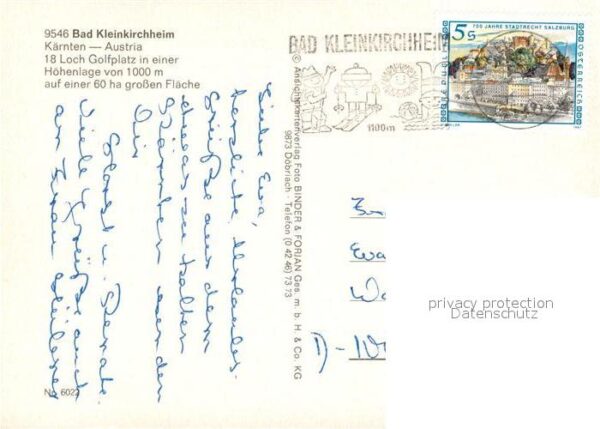 9546 Bad Kleinkirchheim
Kärnten — Austria
18 Loch Golfplatz in einer
Höhenlage von 1000 m
auf einer 60 ha großen Fläche
BAD KLEINKIRCHHEIM
1100m
5 S
700 JAHRE STADTRECHT SALZBURG
REPUBLIK ÖSTERREICH
© Ansichtskartenverlag Foto BINDER & FORIAN Ges. m. b. H. & Co. KG
9873 Döbriach - Telefon (0 42 46) 73 73
Liebe Eva,
herzliche Urlaubs-
grüße aus dem
etwas zu kalten
Kärnten senden
Dir
Horst u. Renate.
Viele Grüße auch
an Frau
Eva
D-
privacy protection
Datenschutz
No. 6022